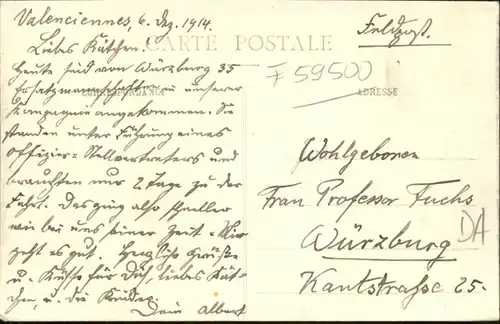 Valenciennes, 6. Dez. 1914.
Liebes Kätchen!
CARTE POSTALE
Feldpost.
Heute sind von Würzburg 35
Ersatzmannschaften in unserer
CORRESPONDANCE
Kompagnie angekommen. Sie
standen unter Führung eines
Offizier-Stellvertreters und
brauchten nur 2 Tage zu der
Fahrt. Das ging also schneller
wie bei uns seiner Zeit. Mir
geht es gut. Herzliche Grüße
u. Küsse für Dich, liebes Kät-
chen, u. die Kinder.
Dein Albert
F 59500
ADRESSE
Wohlgeboren
Frau Professor Fuchs
Würzburg
Kantstrasse 25.
DA